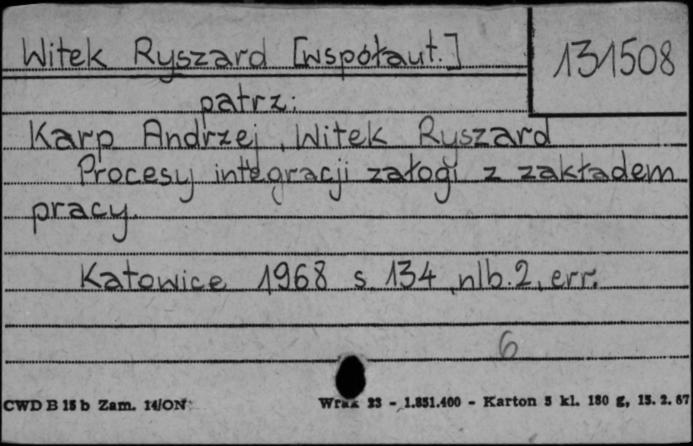 Witek Ryszard [współaut.] 131508
patrz:
Karp Andrzej, Witek Ryszard
Procesy integracji załogi z zakładem
pracy.
Katowice 1968 s. 134, nlb. 2, err.
6
CWD B 15 b Zam. 14/ON 23 - 1.851.400 - Karton 5 kl. 180 g, 15. 2. 67